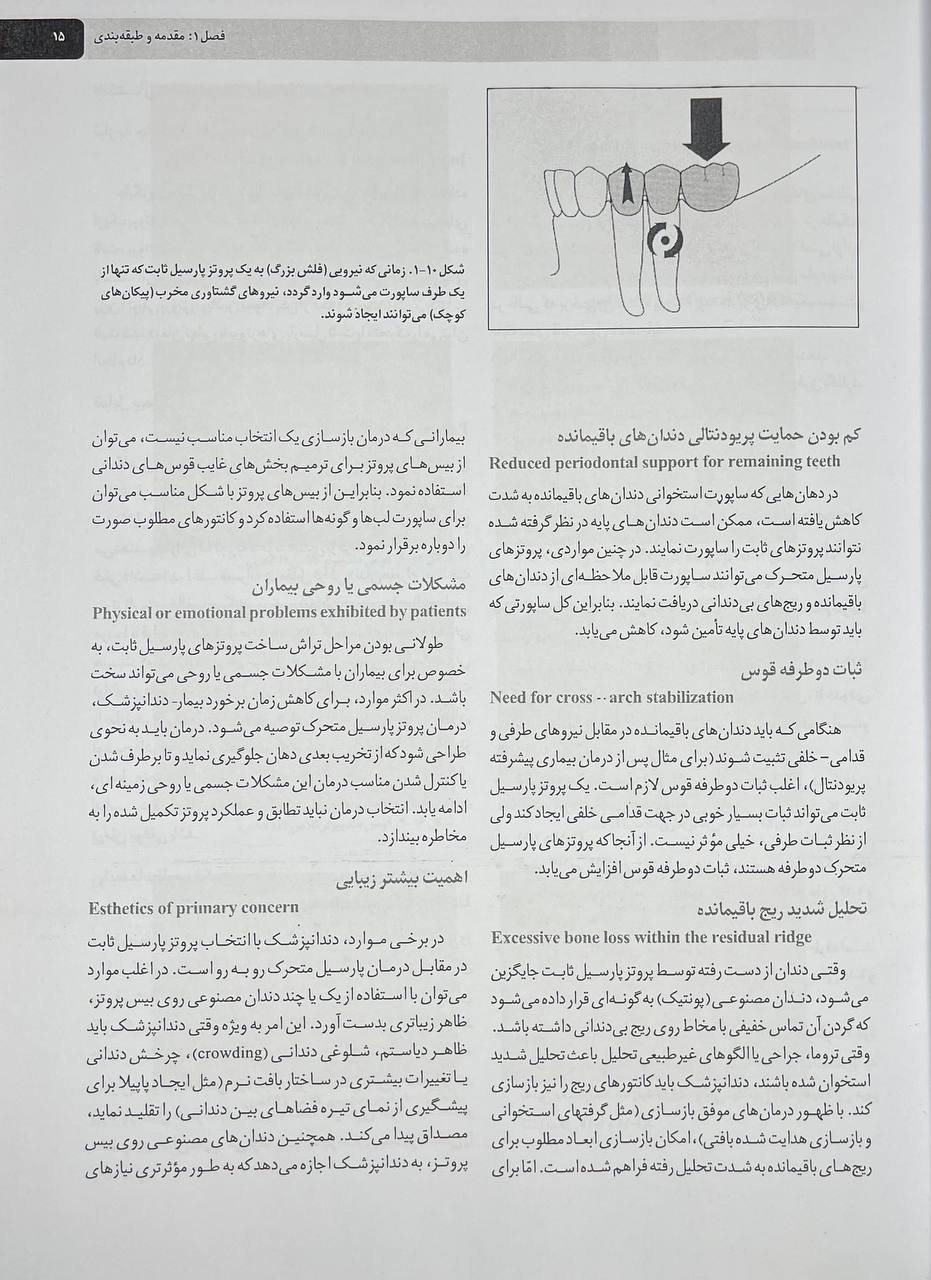 ۱۵
فصل ۱: مقدمه و طبقه‌بندی
شکل ۱۰-۱. زمانی که نیرویی (فلش بزرگ) به یک پروتز پارسیل ثابت که تنها از
یک طرف ساپورت می‌شود وارد گردد، نیروهای گشتاوری مخرب (پیکان‌های
کوچک) می‌توانند ایجاد شوند.
کم بودن حمایت پریودنتالی دندان‌های باقیمانده
Reduced periodontal support for remaining teeth
در دهان‌هایی که ساپورت استخوانی دندان‌های باقیمانده به شدت
کاهش یافته است، ممکن است دندان‌های پایه در نظر گرفته شده
نتوانند پروتزهای ثابت را ساپورت نمایند. در چنین مواردی، پروتزهای
پارسیل متحرک می‌توانند ساپورت قابل ملاحظه‌ای از دندان‌های
باقیمانده و ریج‌های بی‌دندانی دریافت نمایند. بنابراین کل ساپورتی که
باید توسط دندان‌های پایه تأمین شود، کاهش می‌یابد.
ثبات دو طرفه قوس
Need for cross - arch stabilization
هنگامی که باید دندان‌های باقیمانده در مقابل نیروهای طرفی و
قدامی- خلفی تثبیت شوند (برای مثال پس از درمان بیماری پیشرفته
پریودنتال)، اغلب ثبات دوطرفه قوس لازم است. یک پروتز پارسیل
ثابت می‌تواند ثبات بسیار خوبی در جهت قدامی خلفی ایجاد کند ولی
از نظر ثبات طرفی، خیلی مؤثر نیست. از آنجا که پروتزهای پارسیل
متحرک دوطرفه هستند، ثبات دوطرفه قوس افزایش می‌یابد.
تحلیل شدید ریج باقیمانده
Excessive bone loss within the residual ridge
وقتی دندان از دست رفته توسط پروتز پارسیل ثابت جایگزین
می‌شود، دندان مصنوعی (پونتیک) به گونه‌ای قرار داده می‌شود
که گردن آن تماس خفیفی با مخاط روی ریج بی‌دندانی داشته باشد.
وقتی تروما، جراحی یا الگوهای غیرطبیعی تحلیل باعث تحلیل شدید
استخوان شده باشند، دندانپزشک باید کانتورهای ریج را نیز بازسازی
کند. با ظهور درمان‌های موفق بازسازی (مثل گرفتهای استخوانی
و بازسازی هدایت شده بافتی)، امکان بازسازی ابعاد مطلوب برای
ریج‌های باقیمانده به شدت تحلیل رفته فراهم شده است. امّا برای
بیمارانی که درمان بازسازی یک انتخاب مناسب نیست، می‌توان
از بیس‌های پروتز برای ترمیم بخش‌های غایب قوس‌های دندانی
استفاده نمود. بنابراین از بیس‌های پروتز با شکل مناسب می‌توان
برای ساپورت لب‌ها و گونه‌ها استفاده کرد و کانتورهای مطلوب صورت
را دوباره برقرار نمود.
مشکلات جسمی یا روحی بیماران
Physical or emotional problems exhibited by patients
طولانی بودن مراحل تراش ساخت پروتزهای پارسیل ثابت، به
خصوص برای بیماران با مشکلات جسمی یا روحی می‌تواند سخت
باشد. در اکثر موارد، برای کاهش زمان برخورد بیمار- دندانپزشک،
درمان پروتز پارسیل متحرک توصیه می‌شود. درمان باید به نحوی
طراحی شود که از تخریب بعدی دهان جلوگیری نماید و تا برطرف شدن
یا کنترل شدن مناسب درمان این مشکلات جسمی یا روحی زمینه ای،
ادامه یابد. انتخاب درمان نباید تطابق و عملکرد پروتز تکمیل شده را به
مخاطره بیندازد.
اهمیت بیشتر زیبایی
Esthetics of primary concern
در برخی موارد، دندانپزشک با انتخاب پروتز پارسیل ثابت
در مقابل درمان پارسیل متحرک رو به رو است. در اغلب موارد
می‌توان با استفاده از یک یا چند دندان مصنوعی روی بیس پروتز،
ظاهر زیباتری بدست آورد. این امر به ویژه وقتی دندانپزشک باید
ظاهر دیاستم، شلوغی دندانی (crowding)، چرخش دندانی
یا تغییرات بیشتری در ساختار بافت نرم (مثل ایجاد پاپیلا برای
پیشگیری از نمای تیره فضاهای بین دندانی) را تقلید نماید،
مصداق پیدا می‌کند. همچنین دندان‌های مصنوعی روی بیس
پروتز، به دندانپزشک اجازه می‌دهد که به طور مؤثرتری نیازهای